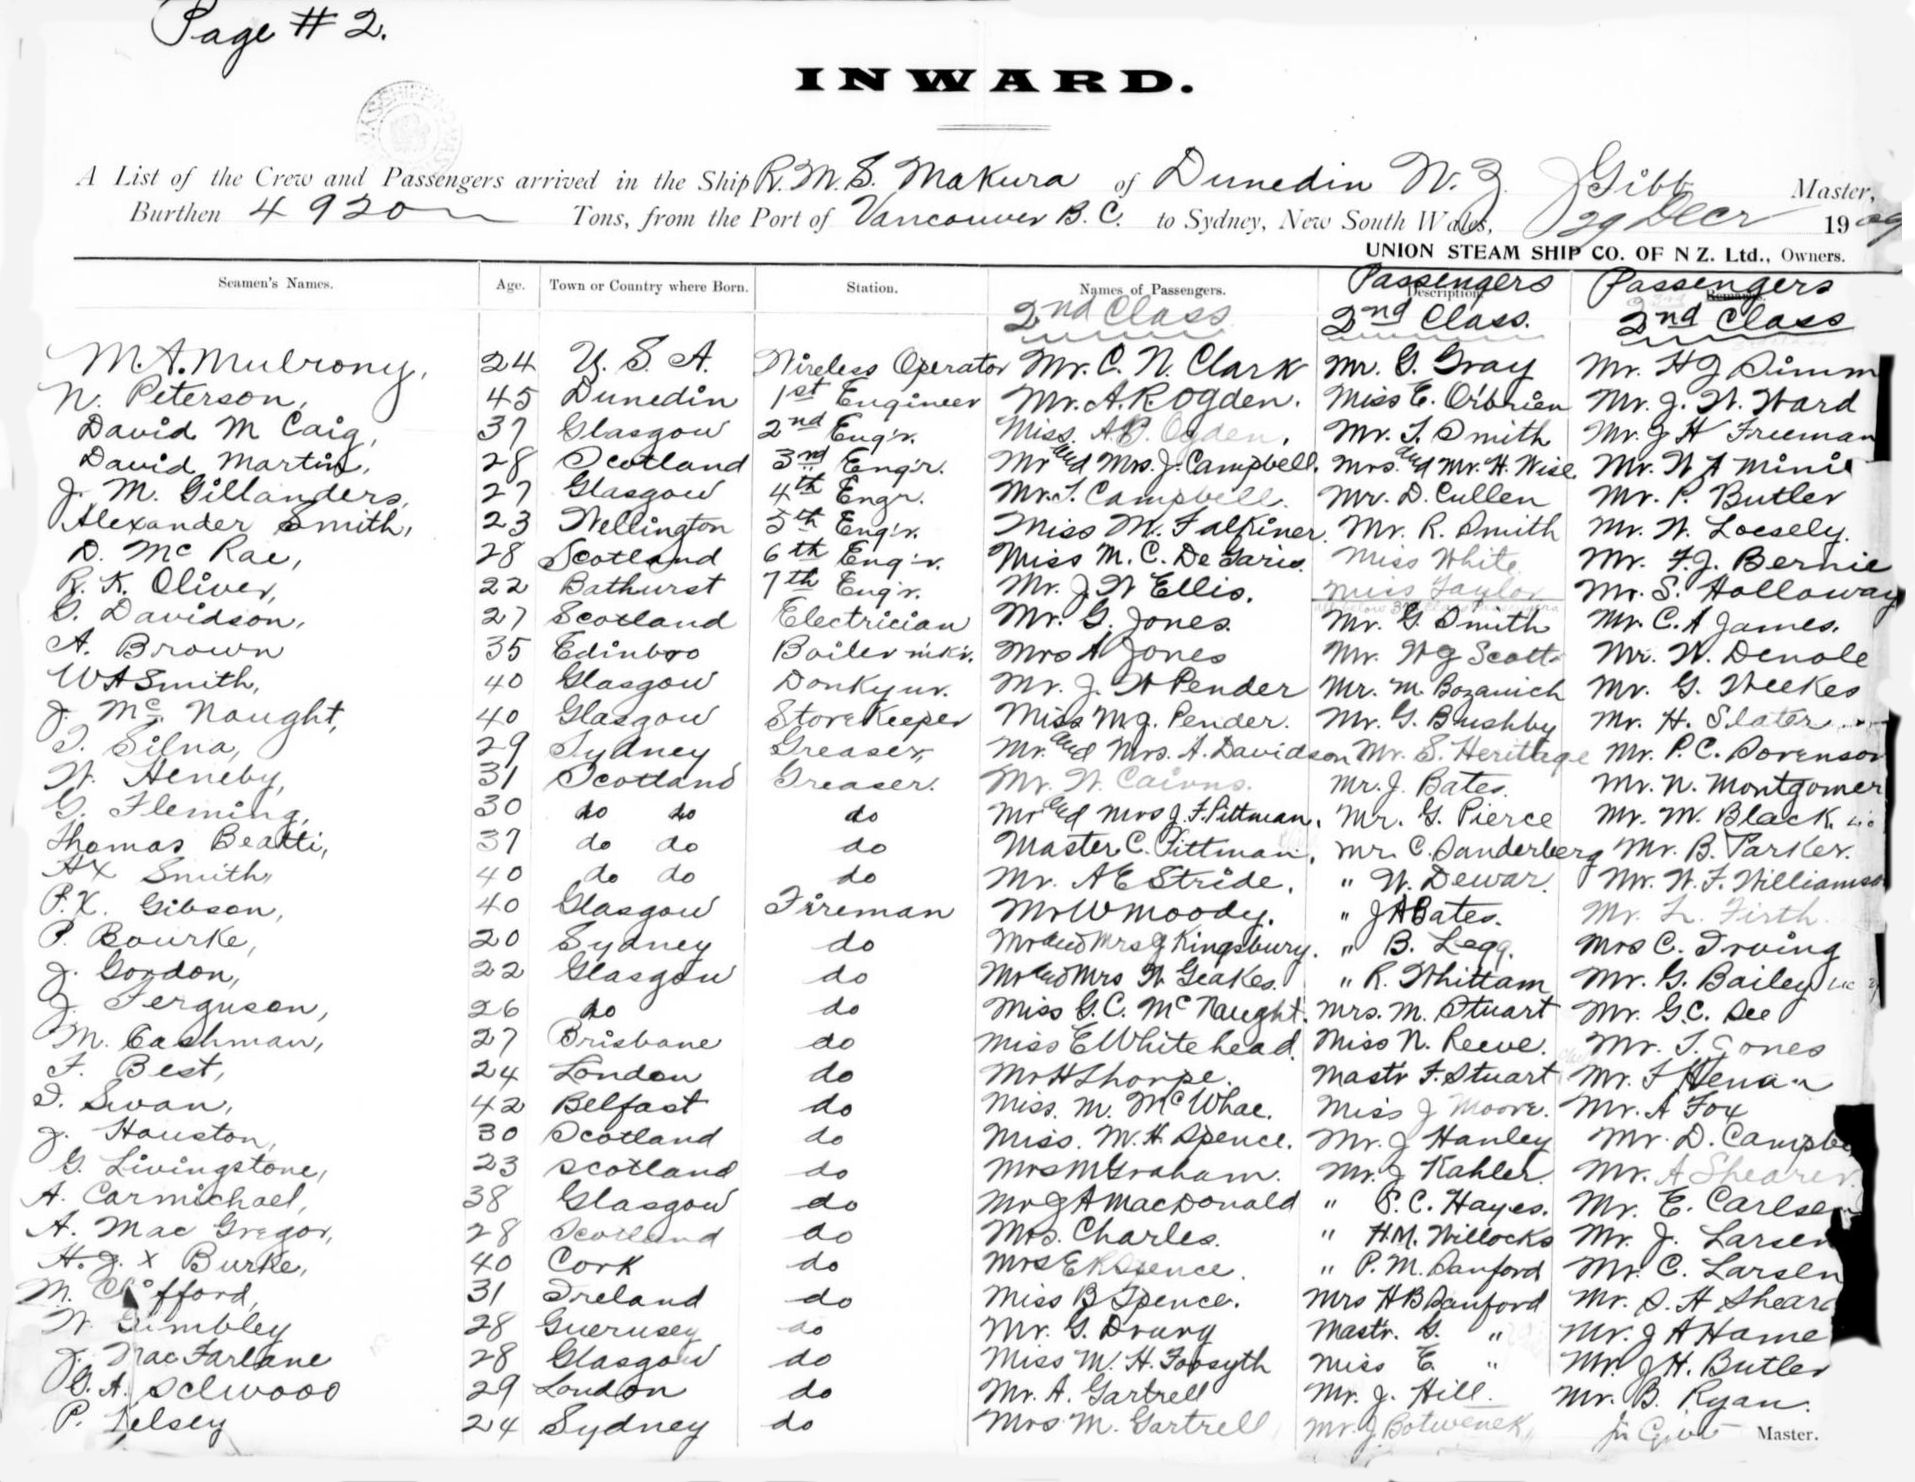 Page # 2.
INWARD.
A List of the Crew and Passengers arrived in the Ship R.M.S. Makura of Dunedin N.Z. J Gibb Master,
Burthen 4920 Tons, from the Port of Vancouver B.C. to Sydney, New South Wales, 29 Decr 1909
UNION STEAM SHIP CO. OF N Z. Ltd., Owners.
Seamen's Names. Age. Town or Country where Born. Station. Names of Passengers. Description. Remarks.
2nd Class Passengers 2nd Class. Passengers 2nd Class
M.A. Mulrony, 24 U.S.A. Wireless Operator Mr. C. N. Clark Mr. G. Gray Mr. H J Simm
N. Peterson, 45 Dunedin 1st Engineer Mr. A.R. Ogden. Miss E. O'brien Mr. J. W. Ward
David M Caig, 37 Glasgow 2nd Eng'r. Miss. Ogden. Mr. T. Smith Mr. J H Freeman
David Martin, 28 Scotland 3nd Eng'r. Mr and Mrs. J. Campbell. Mrs. and Mr. H. Wise Mr. W A
J. M. Gillanders, 27 Glasgow 4th Engr. Mr. T. Campbell. Mr. D. Cullen Mr. P. Butler
Alexander Smith, 23 Wellington 5th Eng'r. Miss M. Falkiner, Mr. R. Smith Mr. W. Loesely.
D. Mc Rae, 28 Scotland 6th Eng'r. Miss M. C. De Garis. Miss White Mr. F.J. Bernie
R. K. Oliver, 22 Bathurst 7th Eng'r. Mr. J. W Ellis. Miss Taylor Mr. S. Holloway
all below 3rd Class Passengers
G. Davidson, 27 Scotland Electrician Mr. G. Jones. Mr. G. Smith Mr. C. A James.
A. Brown 35 Edinboro Boiler mk'r. Mrs A Jones Mr. W G Scott Mr. W. Denole
W A Smith, 40 Glasgow Donkyur. Mr. J. W Pender Mr. M. Bozanich Mr. G. Weekes
J. Mc. Nought, 40 Glasgow Store Keeper Miss M J. Pender. Mr. G. Bushby Mr. H. Slater
T. Silva, 29 Sydney Greaser, Mr. and Mrs. A. Davidson Mr. S. Heritage Mr. P. C. Sorenson
W. Heneby, 31 Scotland Greaser. Mr. W. Cairns. Mr. J. Bates. Mr. N. Montgomer
G. Fleming, 30 do do do Mr and Mrs J. F. Pittman. Mr. G. Pierce Mr. M. Black.
Thomas Beatti, 37 do do do Master C. Pittman. Mr. C. Sanderberg Mr. B. Parker.
H X Smith, 40 do do do Mr. A E Stride. " W. Dewar. Mr. W. F. Williamso
P. X. Gibson, 40 Glasgow Fireman Mr W Moody. " J A Bates. Mr. L. Firth.
P. Bourke, 20 Sydney do Mr and Mrs J Kingsbury. " B. Legg. Mrs C. Irving
J. Gordon, 22 Glasgow do Mr and Mrs W Geakes. " R. Whittam Mr. G. Bailey
J. Ferguson, 26 do do Miss G. C. Mc Naught. Mrs. M. Stuart Mr. G.C. See
M. Cashman, 27 Brisbane do Miss E Whitehead. Miss N. Reeve. Mr. T. Jones
F. Best, 24 London do Mr H Thorpe. Mastr F. Stuart Mr. F
I. Swan, 42 Belfast do Miss. M. McWhae. Miss J Moore. Mr. A Fox
J. Houston, 30 Scotland do Miss. M. H. Spence. Mr. J Hanley Mr. D. Campbe
G. Livingstone, 23 Scotland do Mrs M Graham. Mr. J Kahler. Mr. A Shearer.
A. Carmichael, 38 Glasgow do Mr J A MacDonald " P. C. Hayes. Mr. E. Carlsen
A. Mac Gregor, 28 Scotland do Mrs. Charles. " H.M. Willocks Mr. J. Larsen
H. J. X Burke, 40 Cork do Mrs E R Spence. " P. M. Sanford Mr. C. Larsen
M. Clifford, 31 Ireland do Miss B Spence. Mrs H B Sanford Mr. S. H Shear
W. Gumbley 28 Guernsey do Mr. G. Drury Mastr. G. " Mr. J A Hame
J. MacFarlane 28 Glasgow do Miss M. H. Forsyth Miss E. " Mr. J H. Butler
G. A. Selwood 29 London do Mr. A. Gartrell Mr. J. Hill. Mr. B. Ryan.
P. Kelsey 24 Sydney do Mrs M. Gartrell Mr. J Botwenek,
Master.